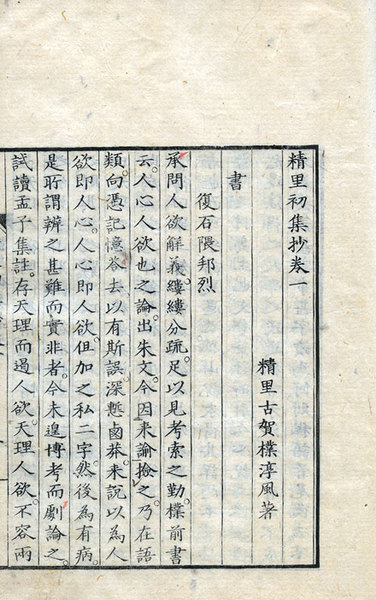 精里初集抄卷一
精里古賀樸淳風著
書
復石隈邦烈
承問人欲解義縷縷分疏足以見考索之勤樸前書
云人心人欲也之論出朱文今因来諭撿之乃在語
類向憑記憶答去以有斯誤深慙鹵莽来說以為人
欲即人心人心即人欲但加之私二字然後為有病
是所謂辨之甚難而實非者今未遑博考而劇論之
試讀孟子集註存天理而遏人欲天理人欲不容兩